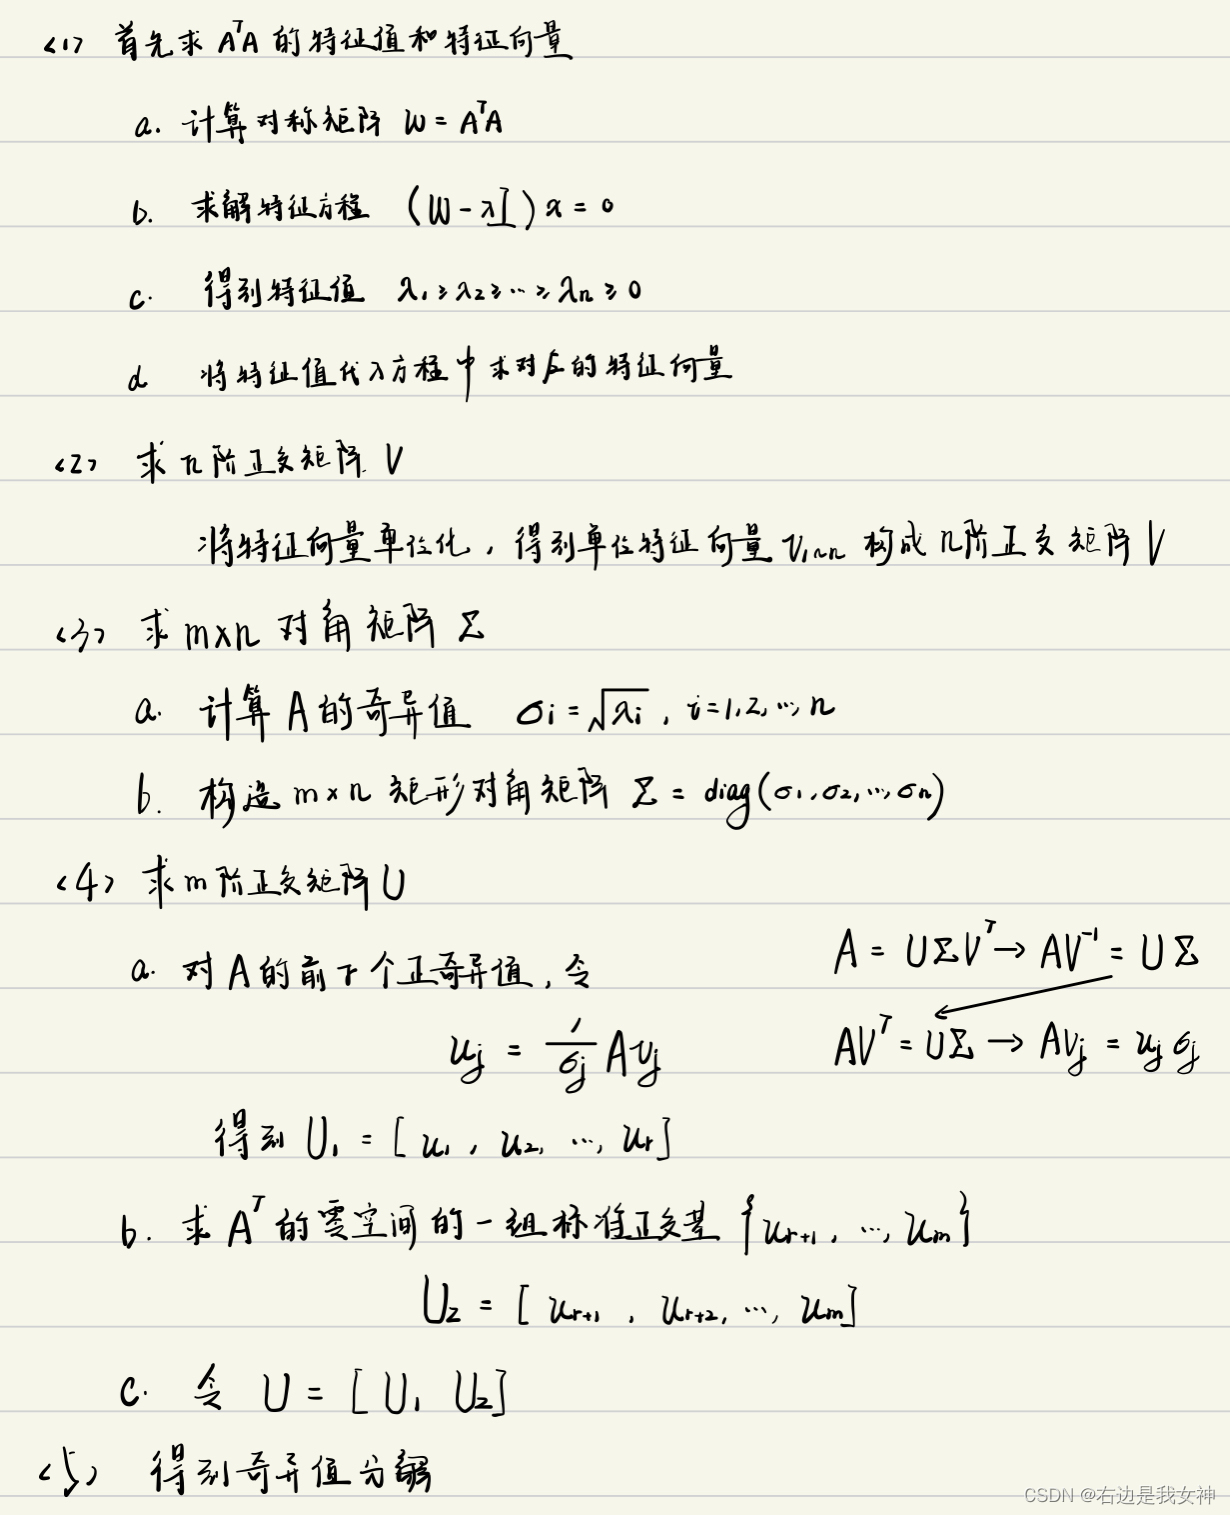 <1> 首先求 AᵀA 的特征值和特征向量
a. 计算对称矩阵 W = AᵀA
b. 求解特征方程 (W - λI) x = 0
c. 得到特征值 λ₁ ≥ λ₂ ≥ … ≥ λn ≥ 0
d 将特征值代入方程中求对应的特征向量
<2> 求 n 阶正交矩阵 V
将特征向量单位化, 得到单位特征向量 v₁~n 构成 n 阶正交矩阵 V
<3> 求 m×n 对角矩阵 Σ
a. 计算 A 的奇异值 σi = √λi , i=1,2,…,n
b. 构造 m×n 矩形对角矩阵 Σ = diag(σ₁,σ₂,…,σn)
<4> 求 m 阶正交矩阵 U
a. 对 A 的前 r 个正奇异值, 令
A = UΣVᵀ → AV⁻¹ = UΣ
uj = 1/σj Avj
AVᵀ = UΣ → Avj = uj σj
得到 U₁ = [ u₁ , u₂, …, ur ]
b. 求 Aᵀ 的零空间的一组标准正交基 {ur+1, …, um}
U₂ = [ ur+1 , ur+2, …, um ]
c. 令 U = [ U₁ U₂ ]
<5> 得到奇异值分解
CSDN @右边是我女神